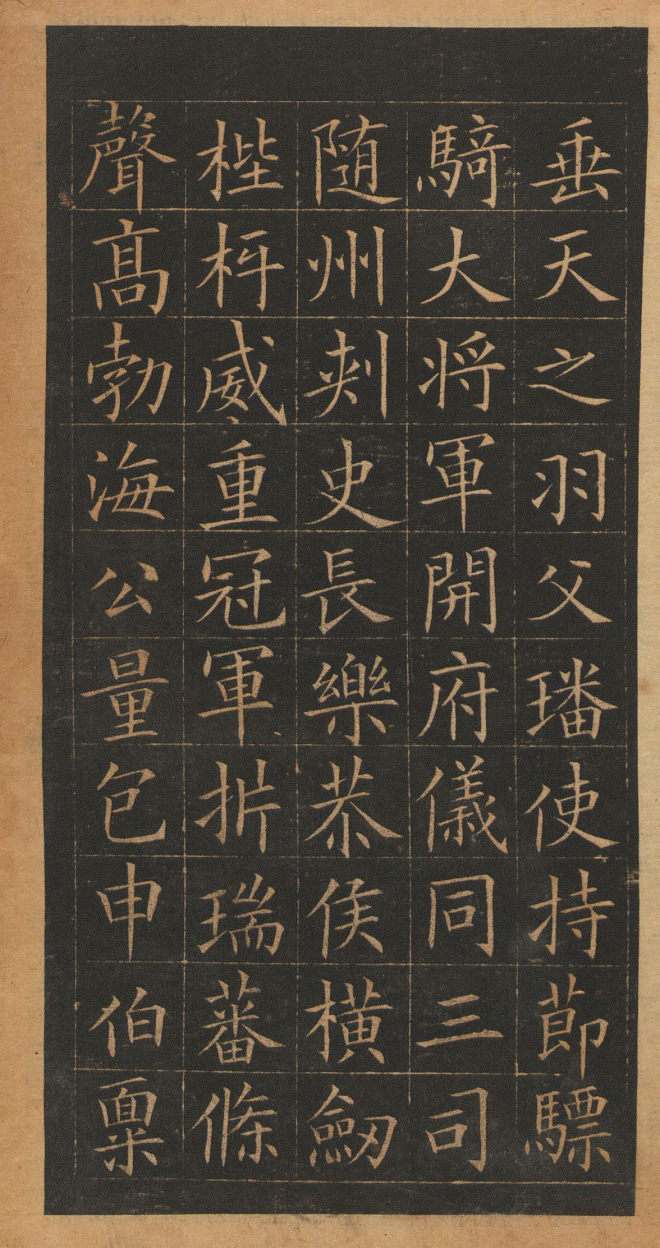 垂天之羽父璠使持節驃
騎大將軍開府儀同三司
随州刾史長樂恭侯横劒
梐枑威重冠軍折瑞蕃條
聲髙勃海公量包申伯稟